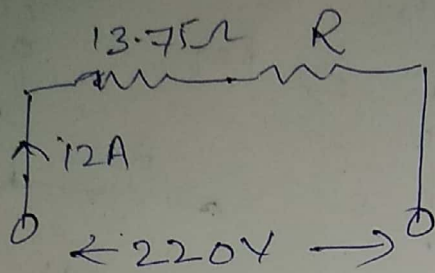 13.75Ω R
12A
220V